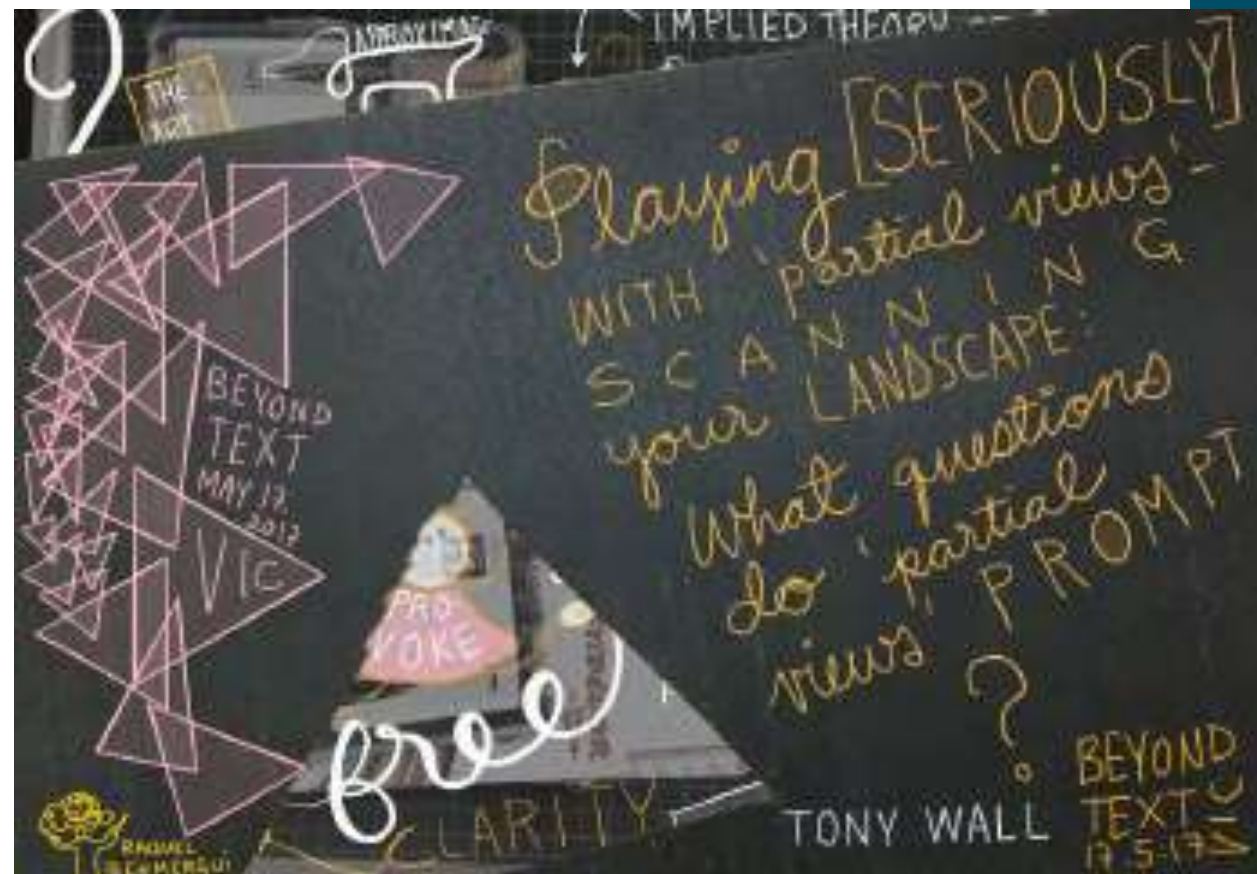 APPROXIMATE
IMPLIED THEORY
THE
ART
Playing [SERIOUSLY]
WITH 'partial views' -
SCANNING
your LANDSCAPE:
What questions
do "partial
views" PROMPT
?
BEYOND
TEXT
MAY 17.
2017
VIC
PRO
VOKE
free
CLARITY
TONY WALL
BEYOND
TEXT
17-5-17
RAQUEL